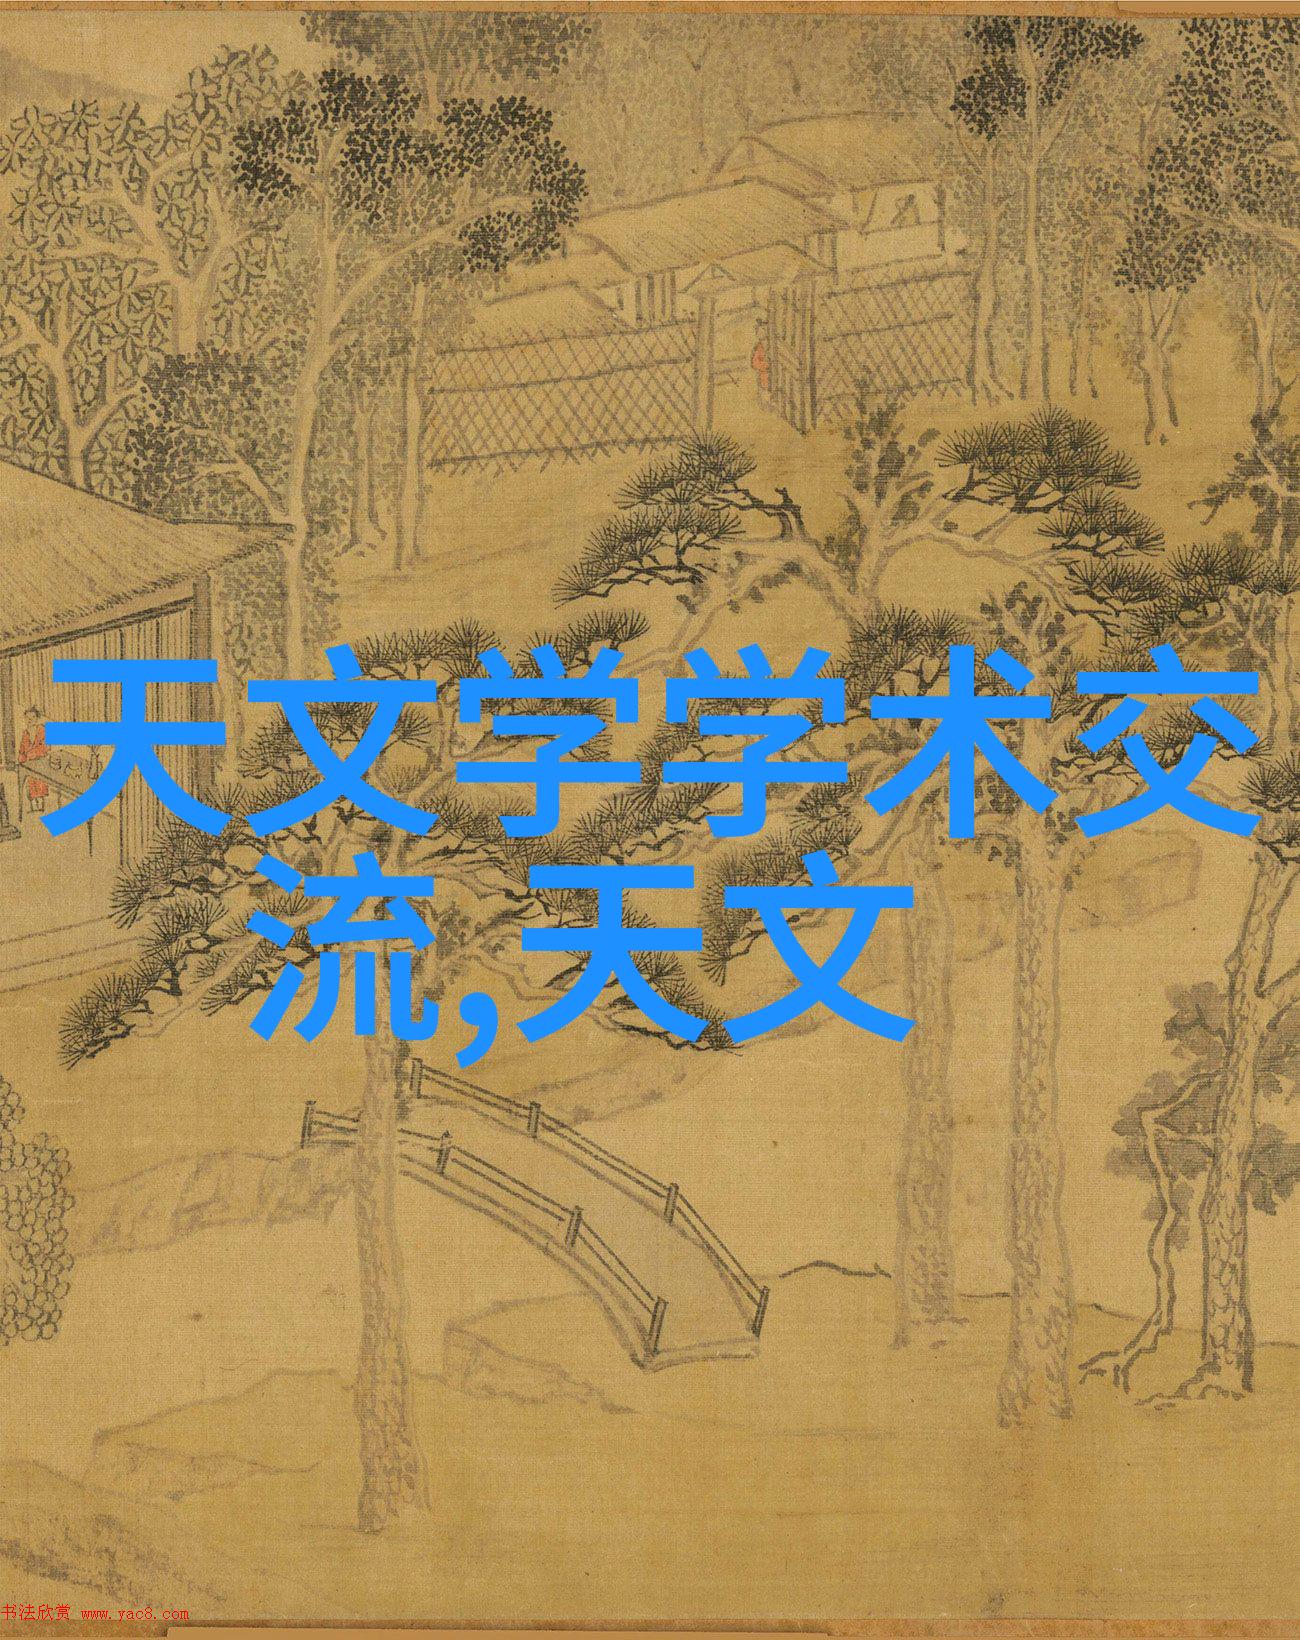 天文学学术交
流,天文
书法欣赏 www.yac8.com